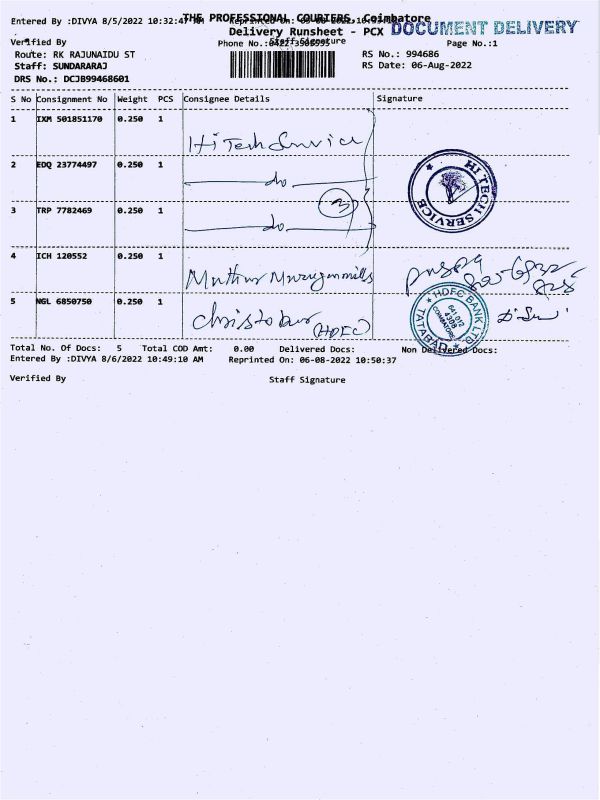 Entered By :DIVYA 8/5/2022 10:32:47 AM
THE PROFESSIONAL COURIERS, Coimbatore
Delivery Runsheet - PCX
DOCUMENT DELIVERY
Verified By
Staff Signature
Phone No.:
Page No.:1
Route: RK RAJUNAIDU ST
RS No.: 994686
Staff: SUNDARARAJ
RS Date: 06-Aug-2022
DRS No.: DCJB99468601
S No Consignment No Weight PCS Consignee Details Signature
1 IXM 501851170 0.250 1
Hi Tech Service
2 EDQ 23774497 0.250 1
do
HI TECH SERVICE
3 TRP 7782469 0.250 1
3
do
4 ICH 120552 0.250 1
Muthu Murugan mills
5 NGL 6850750 0.250 1
Christober (HDFC)
HDFC BANK LTD
641 012
COIMBATORE
TATABAD
Total No. Of Docs: 5 Total COD Amt: 0.00 Delivered Docs: Non Delivered Docs:
Entered By :DIVYA 8/6/2022 10:49:10 AM Reprinted On: 06-08-2022 10:50:37
Verified By Staff Signature